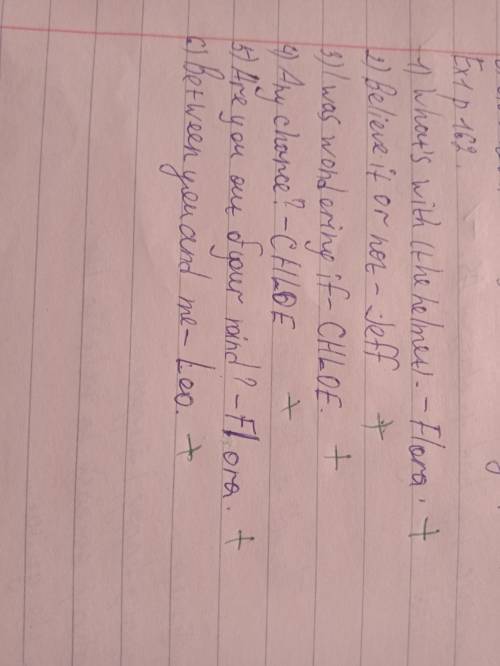 Ex1 p 162.
1) What's with (the helmet). - Flora. +
2) Believe it or not - Jeff +
3) I was wondering if - CHLOE. +
4) Any chance? - CHLOE +
5) Are you out of your mind? - Flora. +
6) Between you and me - Leo. +